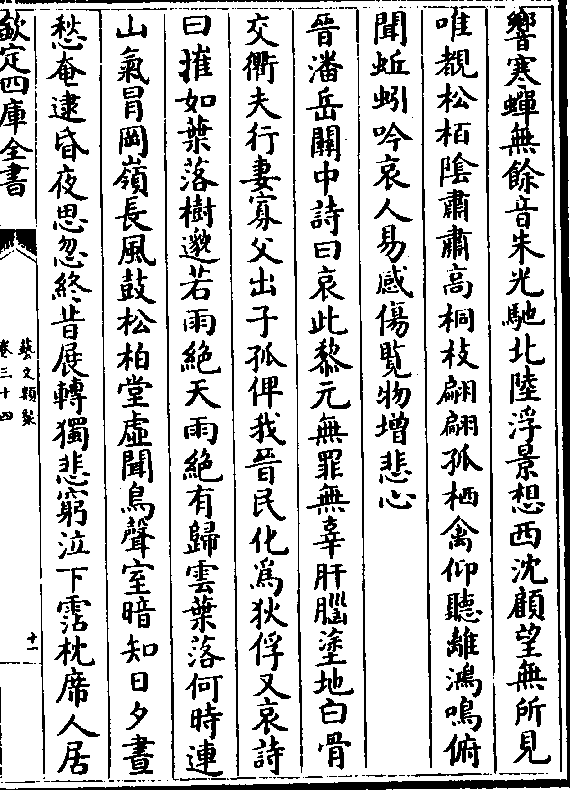 響寒蟬無餘音朱光馳北陸浮景想西沈顧望無所見
唯覩松栢隂肅肅高桐枝翩翩孤栖禽仰聽離鴻鳴俯
聞蚯蚓吟哀人易感傷覧物增悲心
晉潘岳關中詩曰哀此黎元無罪無辜肝腦塗地白骨
交衢夫行妻寡父出子孤俾我晉民化為狄俘又哀詩
曰摧如葉落樹邈若雨絶天雨絶有歸雲葉落何時連
山氣冒岡嶺長風鼓松柏堂虛聞鳥聲室暗知日夕晝
愁奄逮昏夜思忽終昔展轉獨悲窮泣下霑枕席人居
欽定四庫全書
藝文類聚
卷三十四
十一